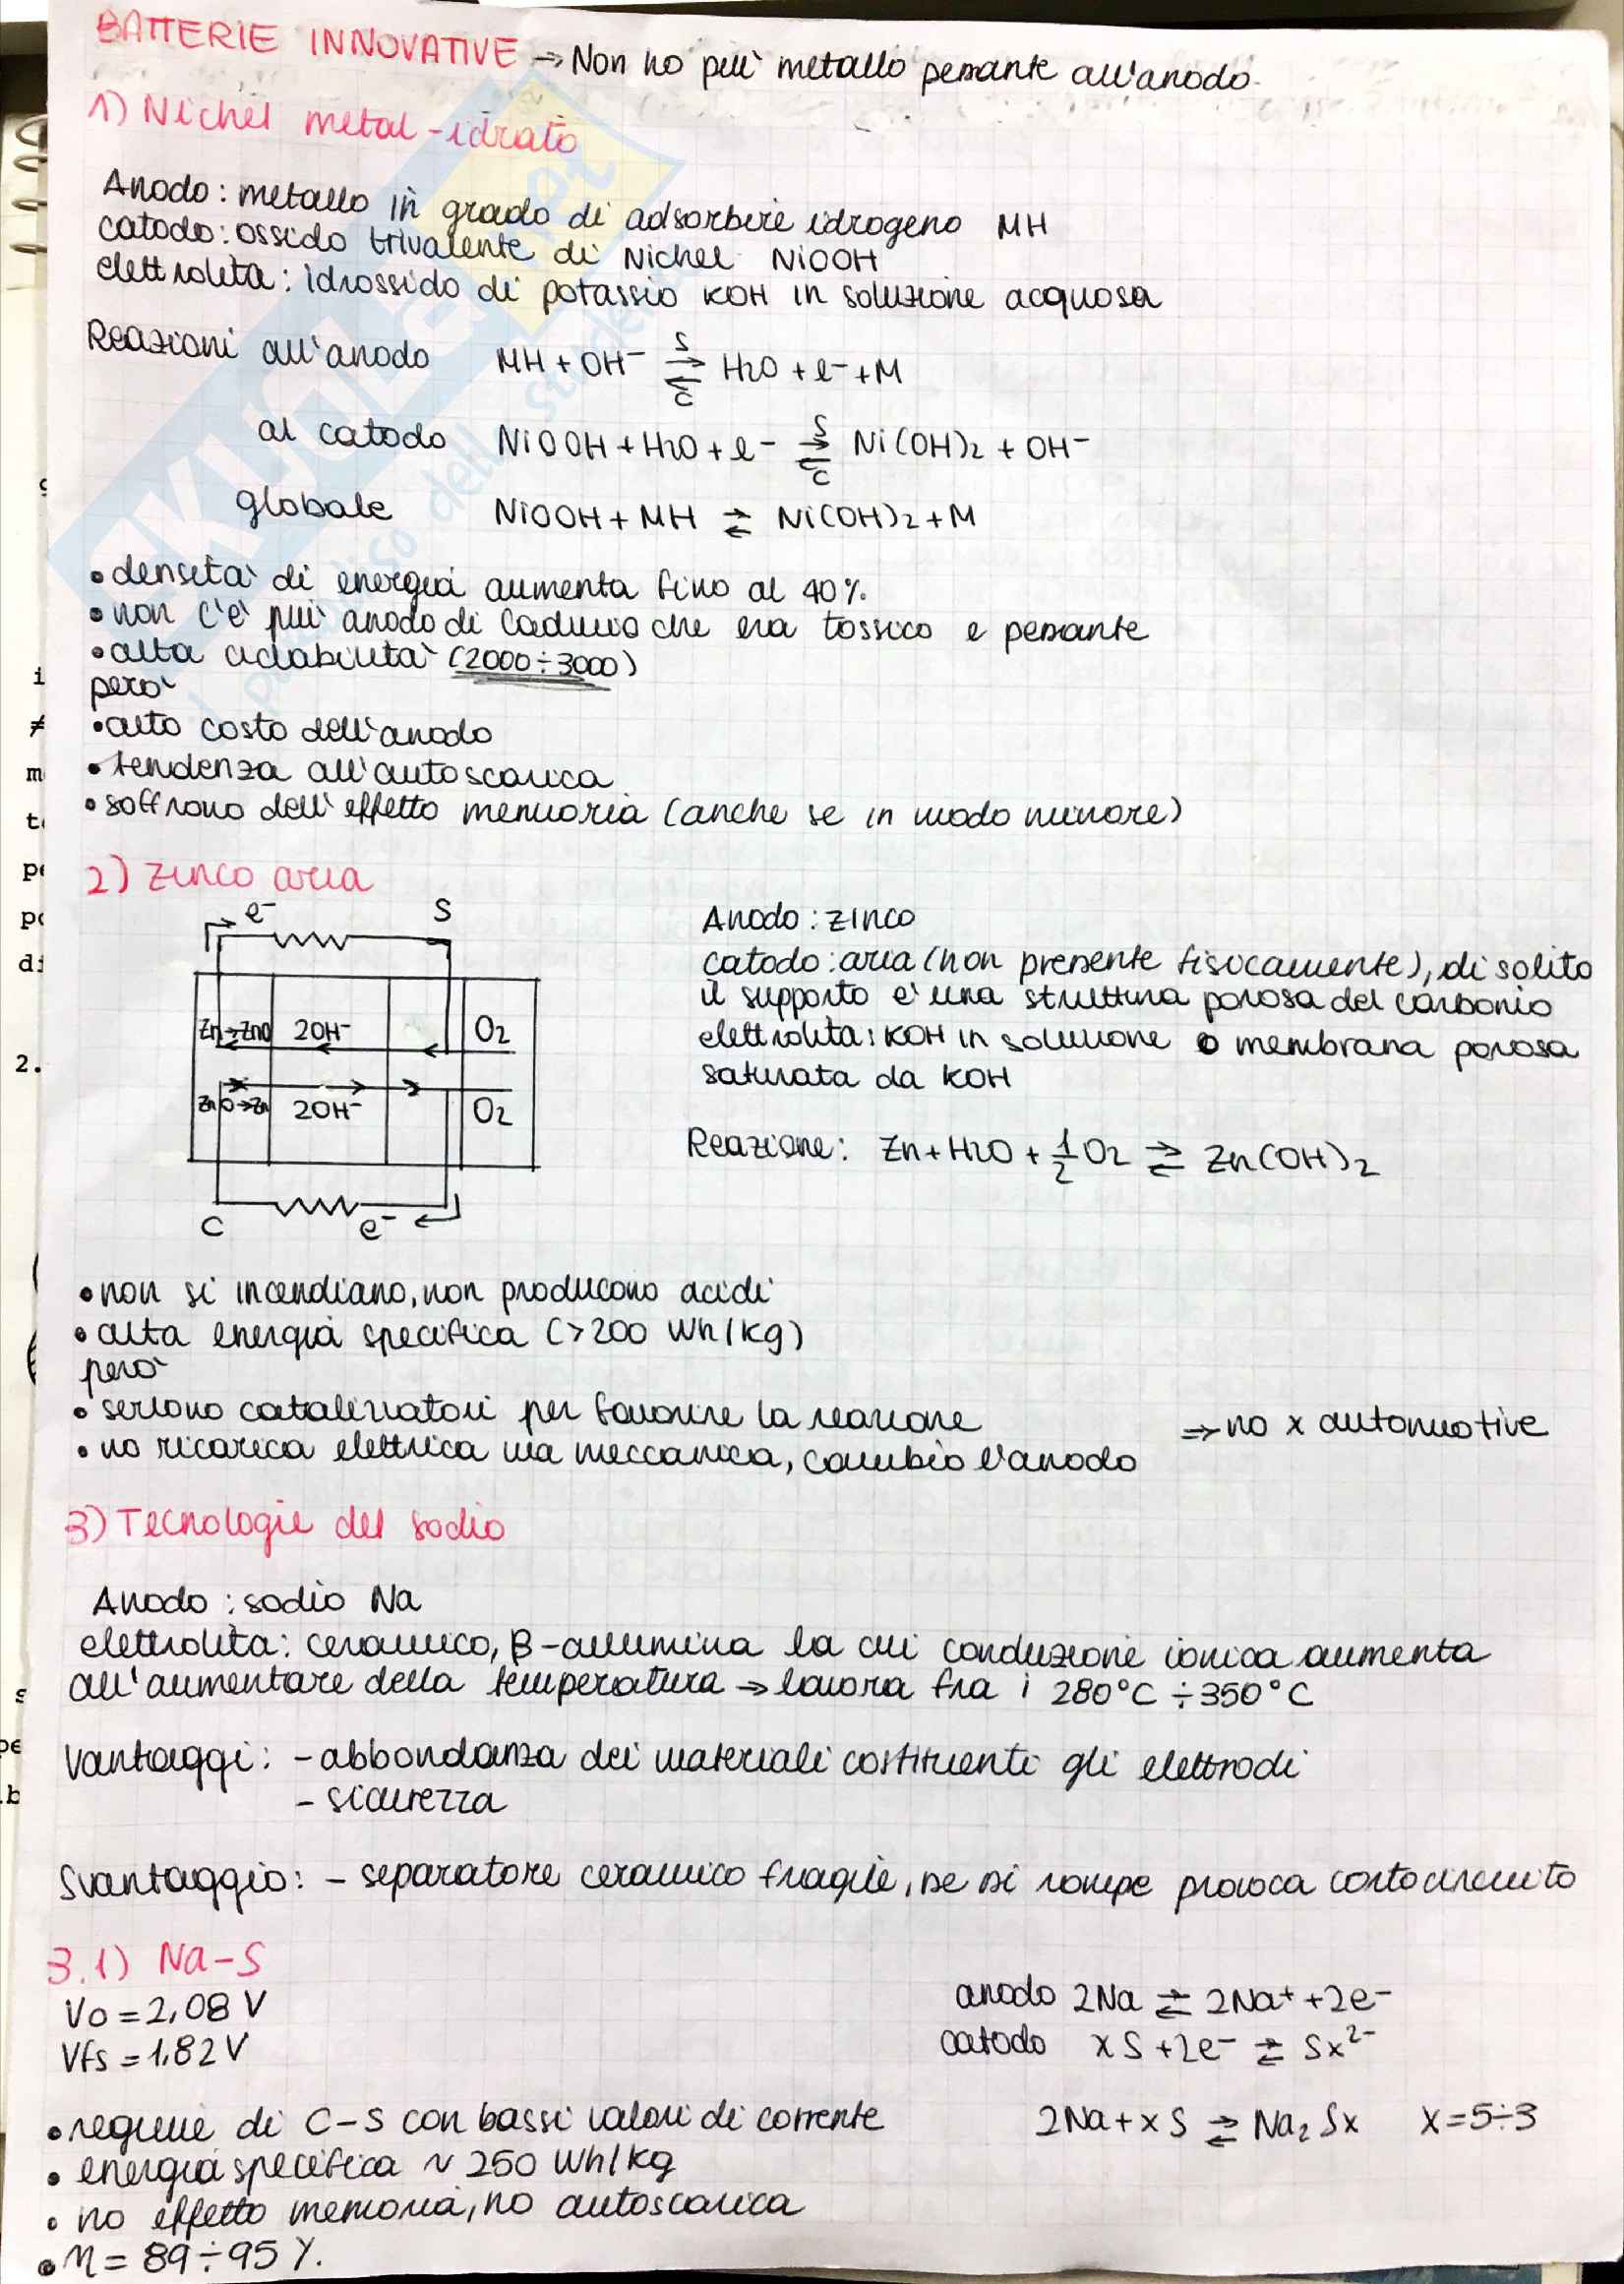 BATTERIE INNOVATIVE → Non ho più metallo pesante all'anodo.
1) Nichel metal-idrato
Anodo: metallo in grado di adsorbire idrogeno MH
catodo: ossido trivalente di Nichel NiOOH
elettrolita: idrossido di potassio KOH in soluzione acquosa
Reazioni all'anodo MH + OH⁻ ⇄ H2O + e⁻ + M
S
C
al catodo NiOOH + H2O + e⁻ ⇄ Ni(OH)2 + OH⁻
S
C
globale NiOOH + MH ⇄ Ni(OH)2 + M
• densità di energia aumenta fino al 40%.
• non c'è più anodo di Cadmio che era tossico e pesante
• alta ciclabilità (2000÷3000)
però
• alto costo dell'anodo
• tendenza all'autoscarica
• soffrono dell'effetto memoria (anche se in modo minore)
2) Zinco aria
e⁻ S
Zn→ZnO 2OH⁻ O2
ZnO→Zn 2OH⁻ O2
C e⁻
Anodo: zinco
catodo: aria (non presente fisicamente), di solito
il supporto è una struttura porosa del carbonio
elettrolita: KOH in soluzione o membrana porosa
saturata da KOH
Reazione: Zn + H2O + 1/2 O2 ⇄ Zn(OH)2
• non si incendiano, non producono acidi
• alta energia specifica (>200 Wh/kg)
però
• servono catalizzatori per favorire la reazione
• no ricarica elettrica ma meccanica, cambio l'anodo
⇒ no x automotive
3) Tecnologie del sodio
Anodo: sodio Na
elettrolita: ceramico, β-allumina la cui conduzione ionica aumenta
all'aumentare della temperatura → lavora fra i 280°C ÷ 350°C
Vantaggi: - abbondanza dei materiali costituenti gli elettrodi
- sicurezza
Svantaggio: - separatore ceramico fragile, se si rompe provoca cortocircuito
3.1) Na-S
V0 = 2,08 V
Vfs = 1,82 V
anodo 2Na ⇄ 2Na⁺ + 2e⁻
catodo xS + 2e⁻ ⇄ Sx²⁻
2Na + xS ⇄ Na2Sx x = 5÷3
• regime di C-S con bassi valori di corrente
• energia specifica ~ 250 Wh/kg
• no effetto memoria, no autoscarica
• η = 89÷95 %.